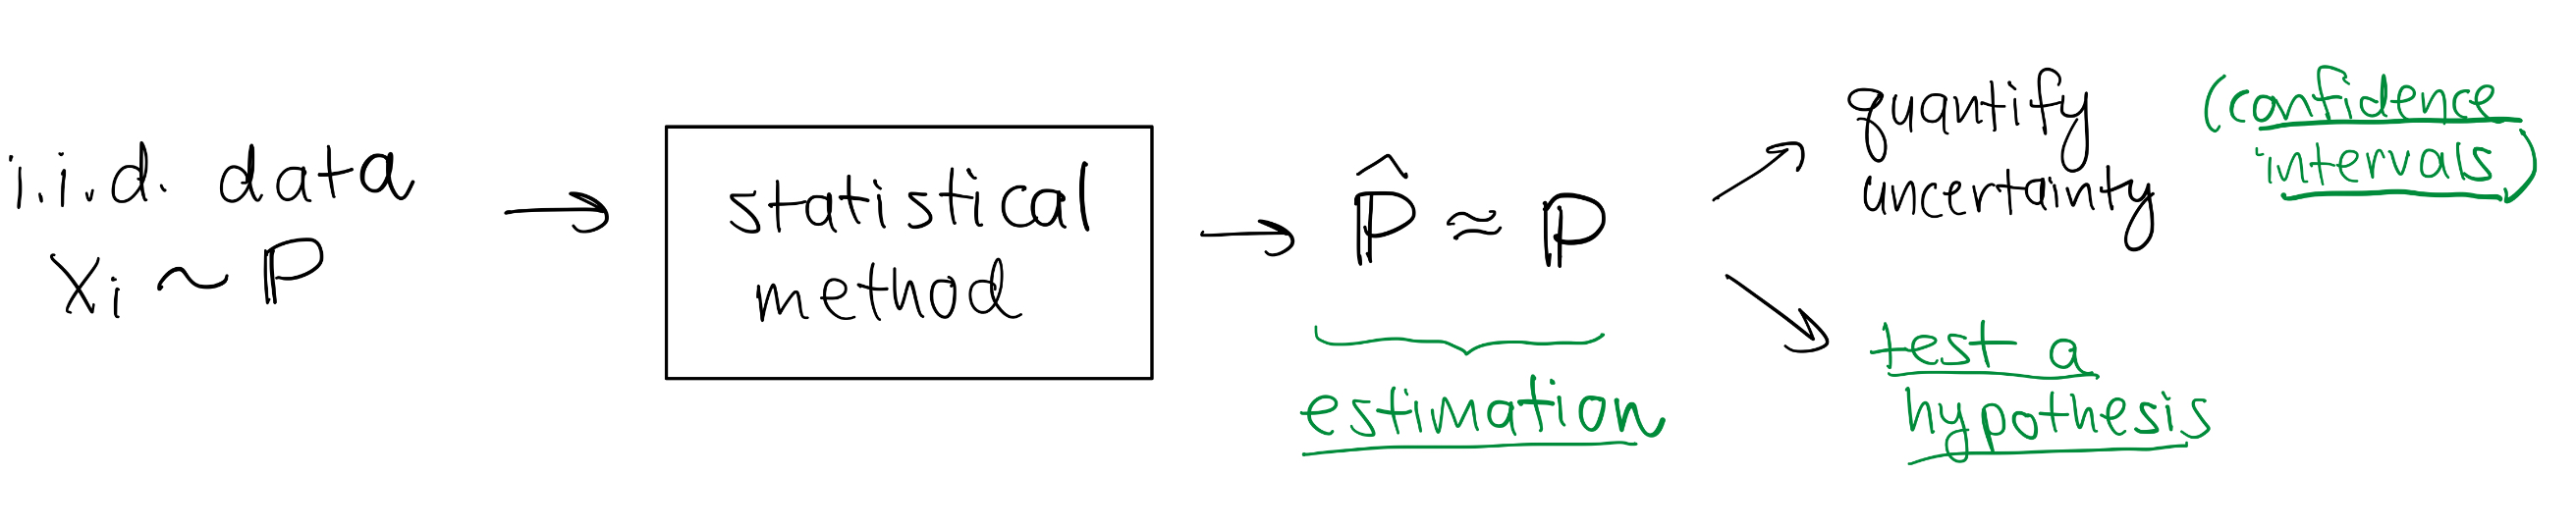 i.i.d. data
Xi ~ ℙ
statistical
method
ℙ̂ ≈ ℙ
estimation
quantify
uncertainty
(confidence
intervals)
test a
hypothesis